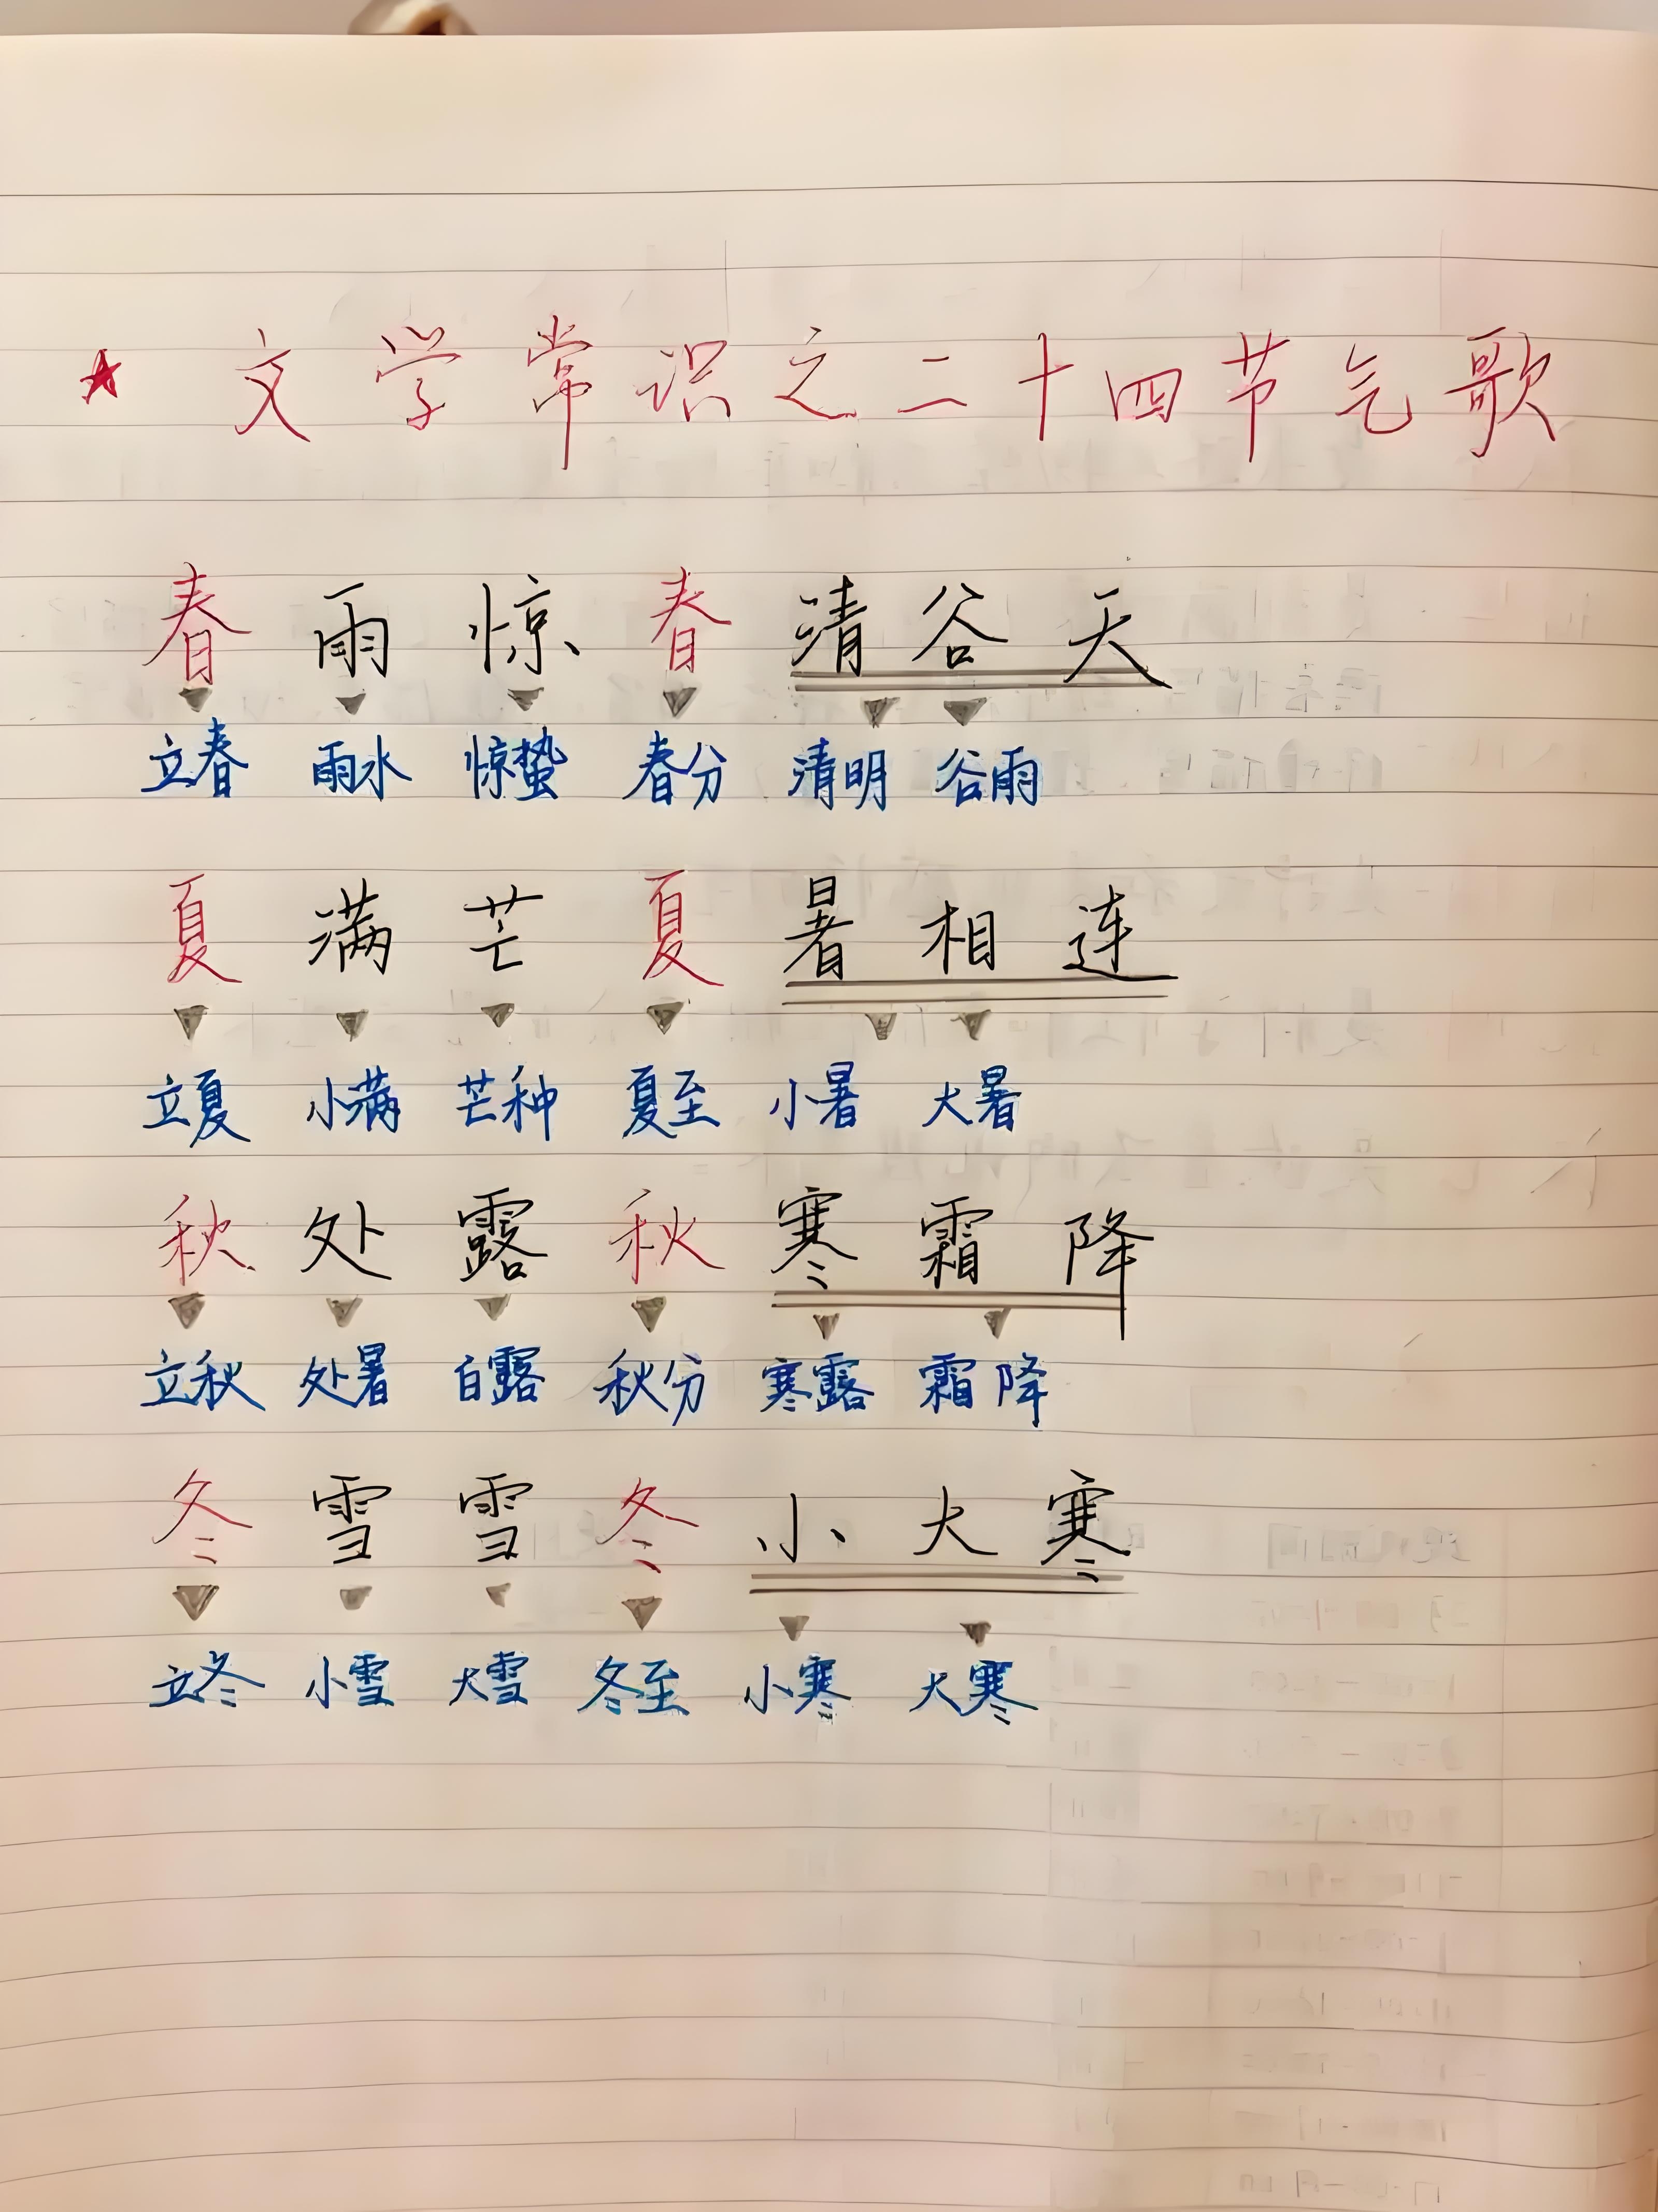 ★ 文学常识之二十四节气歌
春雨惊春清谷天
立春 雨水 惊蛰 春分 清明 谷雨
夏满芒夏暑相连
立夏 小满 芒种 夏至 小暑 大暑
秋处露秋寒霜降
立秋 处暑 白露 秋分 寒露 霜降
冬雪雪冬小大寒
立冬 小雪 大雪 冬至 小寒 大寒